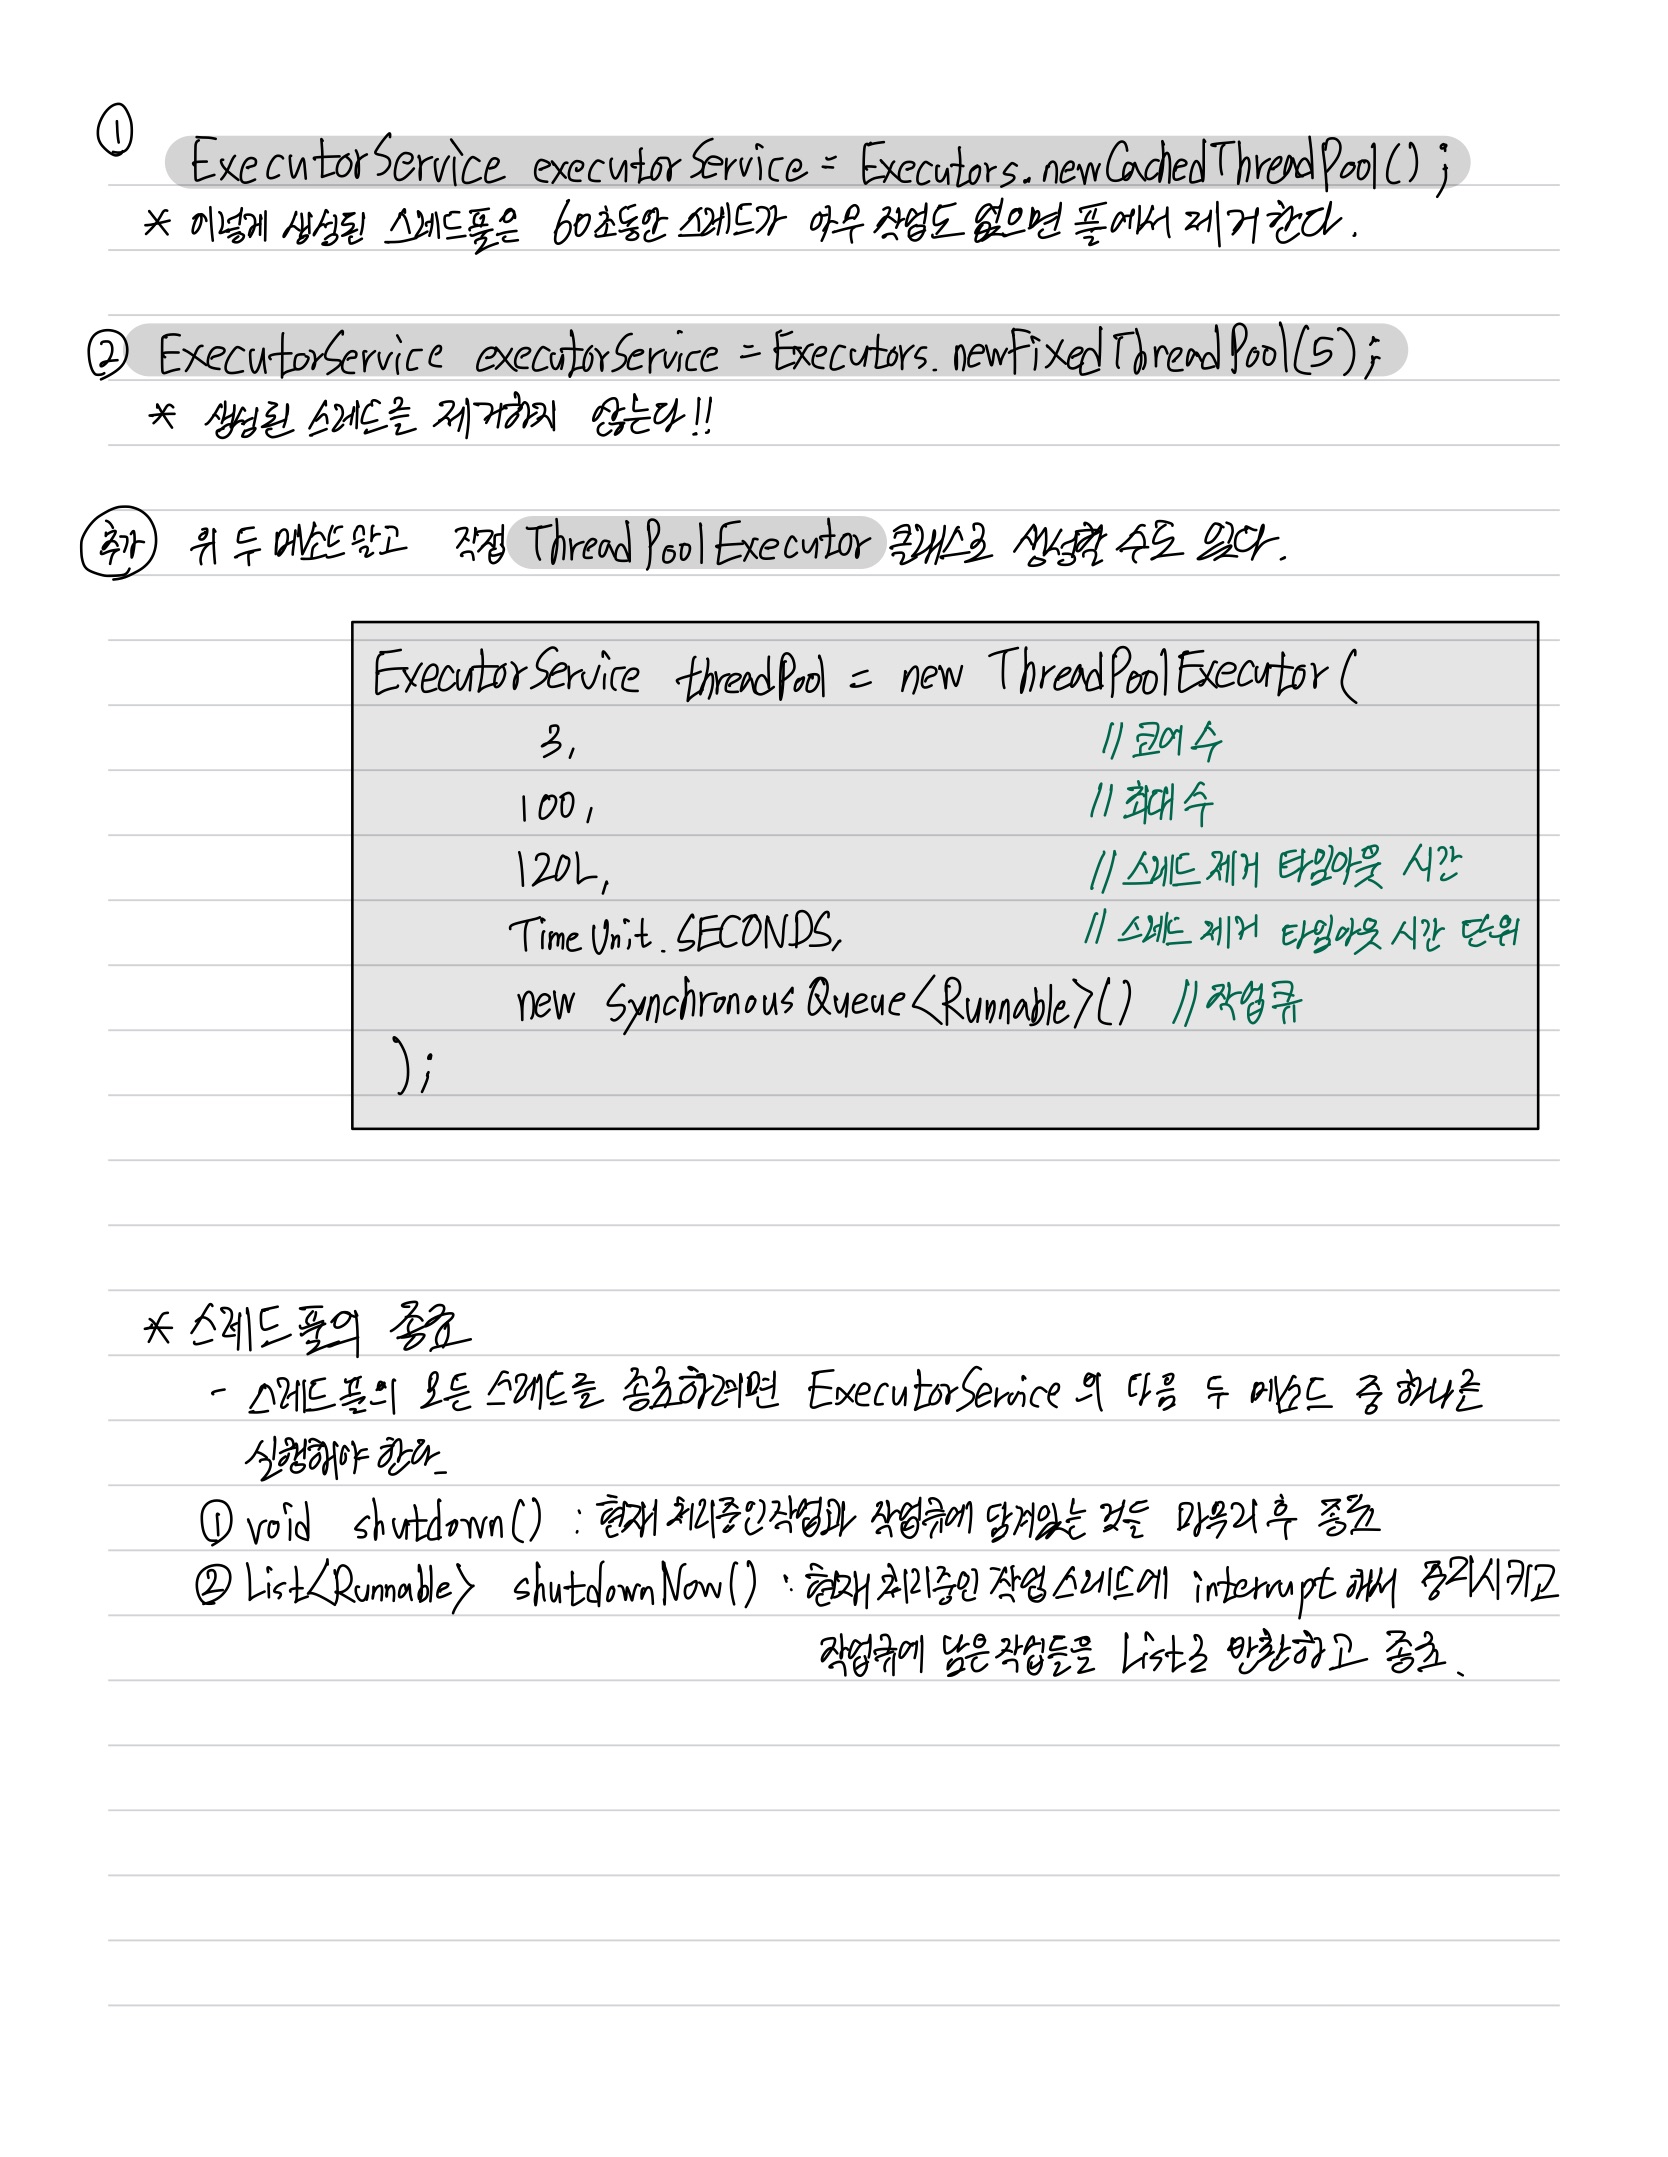 ① ExecutorService executorService = Executors.newCachedThreadPool();
* 이렇게 생성된 스레드풀은 60초동안 스레드가 아무 작업도 없으면 풀에서 제거한다.
② ExecutorService executorService = Executors.newFixedThreadPool(5);
* 생성된 스레드를 제거하지 않는다!!
추가 위 두 메소드말고 직접 ThreadPoolExecutor 클래스로 생성할 수도 있다.
ExecutorService threadPool = new ThreadPoolExecutor(
3, //코어 수
100, //최대 수
120L, //스레드 제거 타임아웃 시간
TimeUnit.SECONDS, //스레드 제거 타임아웃 시간 단위
new SynchronousQueue<Runnable>() //작업큐
);
* 스레드풀의 종료
- 스레드풀의 모든 스레드를 종료하려면 ExecutorService의 다음 두 메소드 중 하나를
실행해야 한다.
① void shutdown() : 현재 처리중인 작업과 작업큐에 담겨있는 것들 마무리 후 종료
② List<Runnable> shutdownNow() : 현재 처리중인 작업 스레드에 interrupt 해서 중지시키고
작업큐에 담은 작업들을 List로 반환하고 종료.